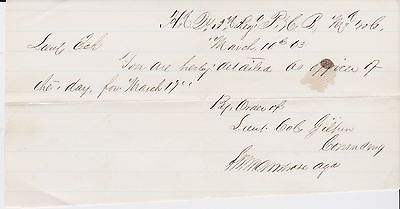 Hd Qrs 3d Regt P. H. B., Md Vols.
March 16th 63
Lieut
You are hereby detailed as officer of
the day, for March 17"
By Order of
Lieut Col Gilpin
Comndng